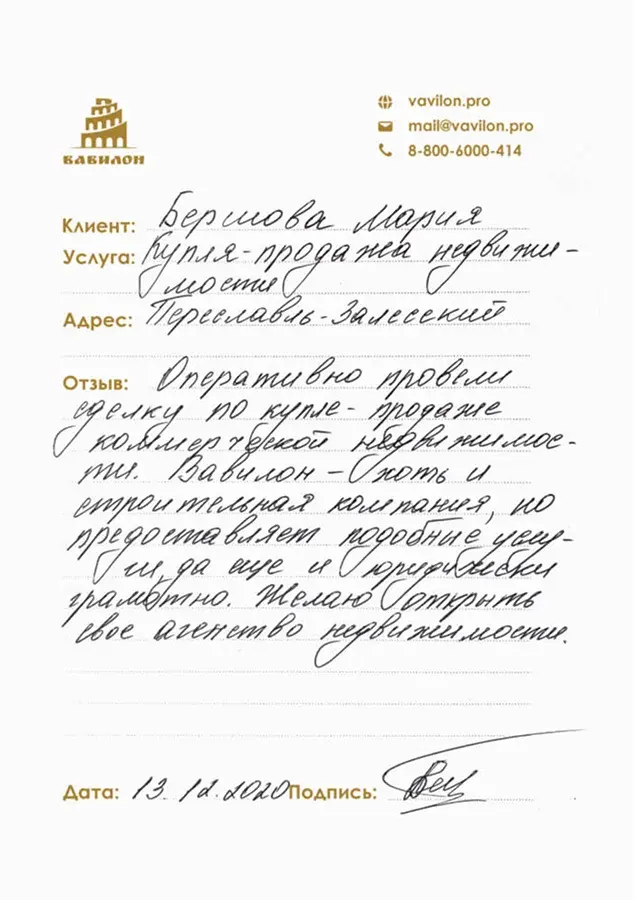 ВАВИЛОН
vavilon.pro
mail@vavilon.pro
8-800-6000-414
Клиент: Бершова Мария
Услуга: Купля-продажа недвижи-
мости
Адрес: Переславль-Залесский
Отзыв: Оперативно провели
сделку по купле-продаже
коммерческой недвижимос-
ти. Вавилон - хоть и
строительная компания, но
предоставляет подобные услу-
ги, да еще и юридически
грамотно. Желаю открыть
свое агенство недвижимости.
Дата: 13.12.2020 Подпись: